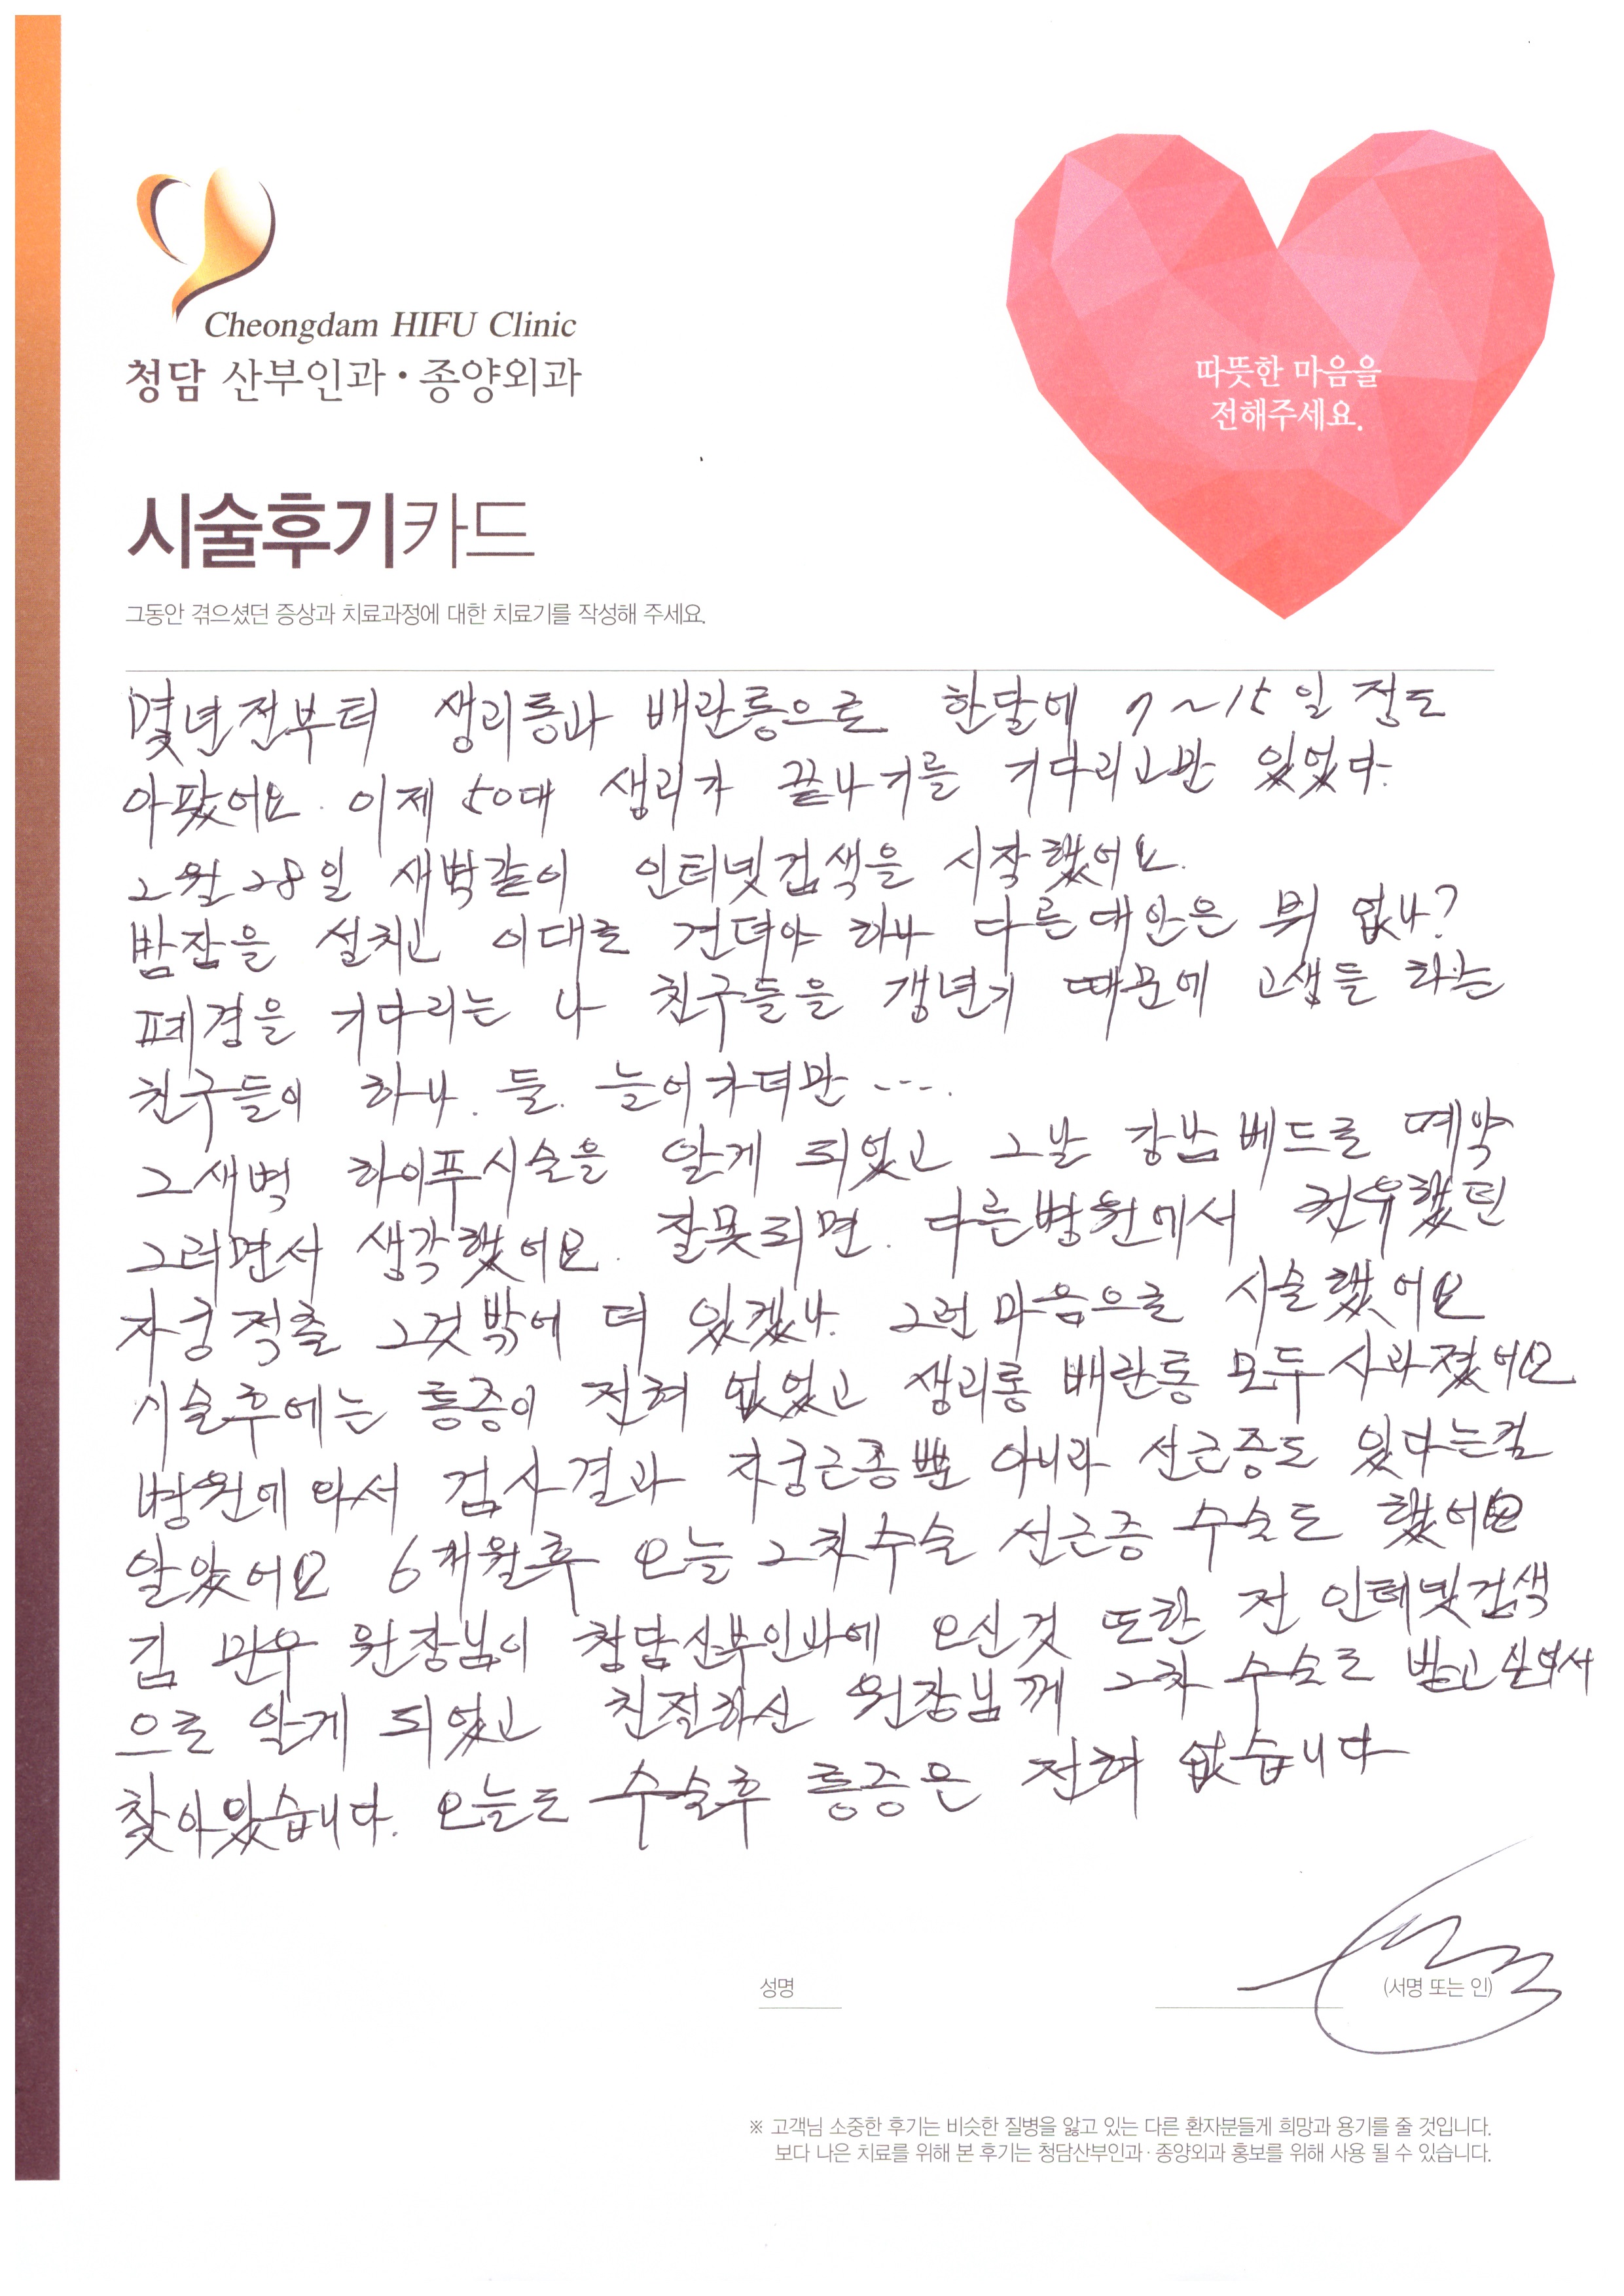 Cheongdam HIFU Clinic
청담 산부인과·종양외과
따뜻한 마음을
전해주세요.
시술후기카드
그동안 겪으셨던 증상과 치료과정에 대한 치료기를 작성해 주세요.
몇년전부터 생리통과 배란통으로 한달에 7~15일 정도
아팠어요. 이제 50대 생리가 끝나기를 기다리고만 있었다.
2월 28일 새벽같이 인터넷검색을 시작했어요.
밤잠을 설치고 이대로 견뎌야 하나 다른대안은 뭐 없나?
폐경을 기다리는 나 친구들을 갱년기 때문에 고생들 하는
친구들이 하나. 둘. 늘어가더만 ---.
그새벽 하이푸시술을 알게 되었고 그날 강남베드로 예약
그러면서 생각했어요. 잘못되면. 다른병원에서 권유했던
자궁적출 그것밖에 더 있겠나. 그런마음으로 시술했어요
시술후에는 통증이 전혀 없었고 생리통 배란통 모두 사라졌어요
병원에 와서 검사결과 자궁근종뿐 아니라 선근증도 있다는걸
알았어요 6개월후 오늘 2차수술 선근증 수술도 했어요
김 민우 원장님이 청담산부인과에 오신것 또한 전 인터넷검색
으로 알게 되었고 친절하신 원장님께 2차 수술로 받고싶어서
찾아왔습니다. 오늘도 수술후 통증은 전혀 없습니다
성명
(서명 또는 인)
※ 고객님 소중한 후기는 비슷한 질병을 앓고 있는 다른 환자분들게 희망과 용기를 줄 것입니다.
보다 나은 치료를 위해 본 후기는 청담산부인과·종양외과 홍보를 위해 사용 될 수 있습니다.